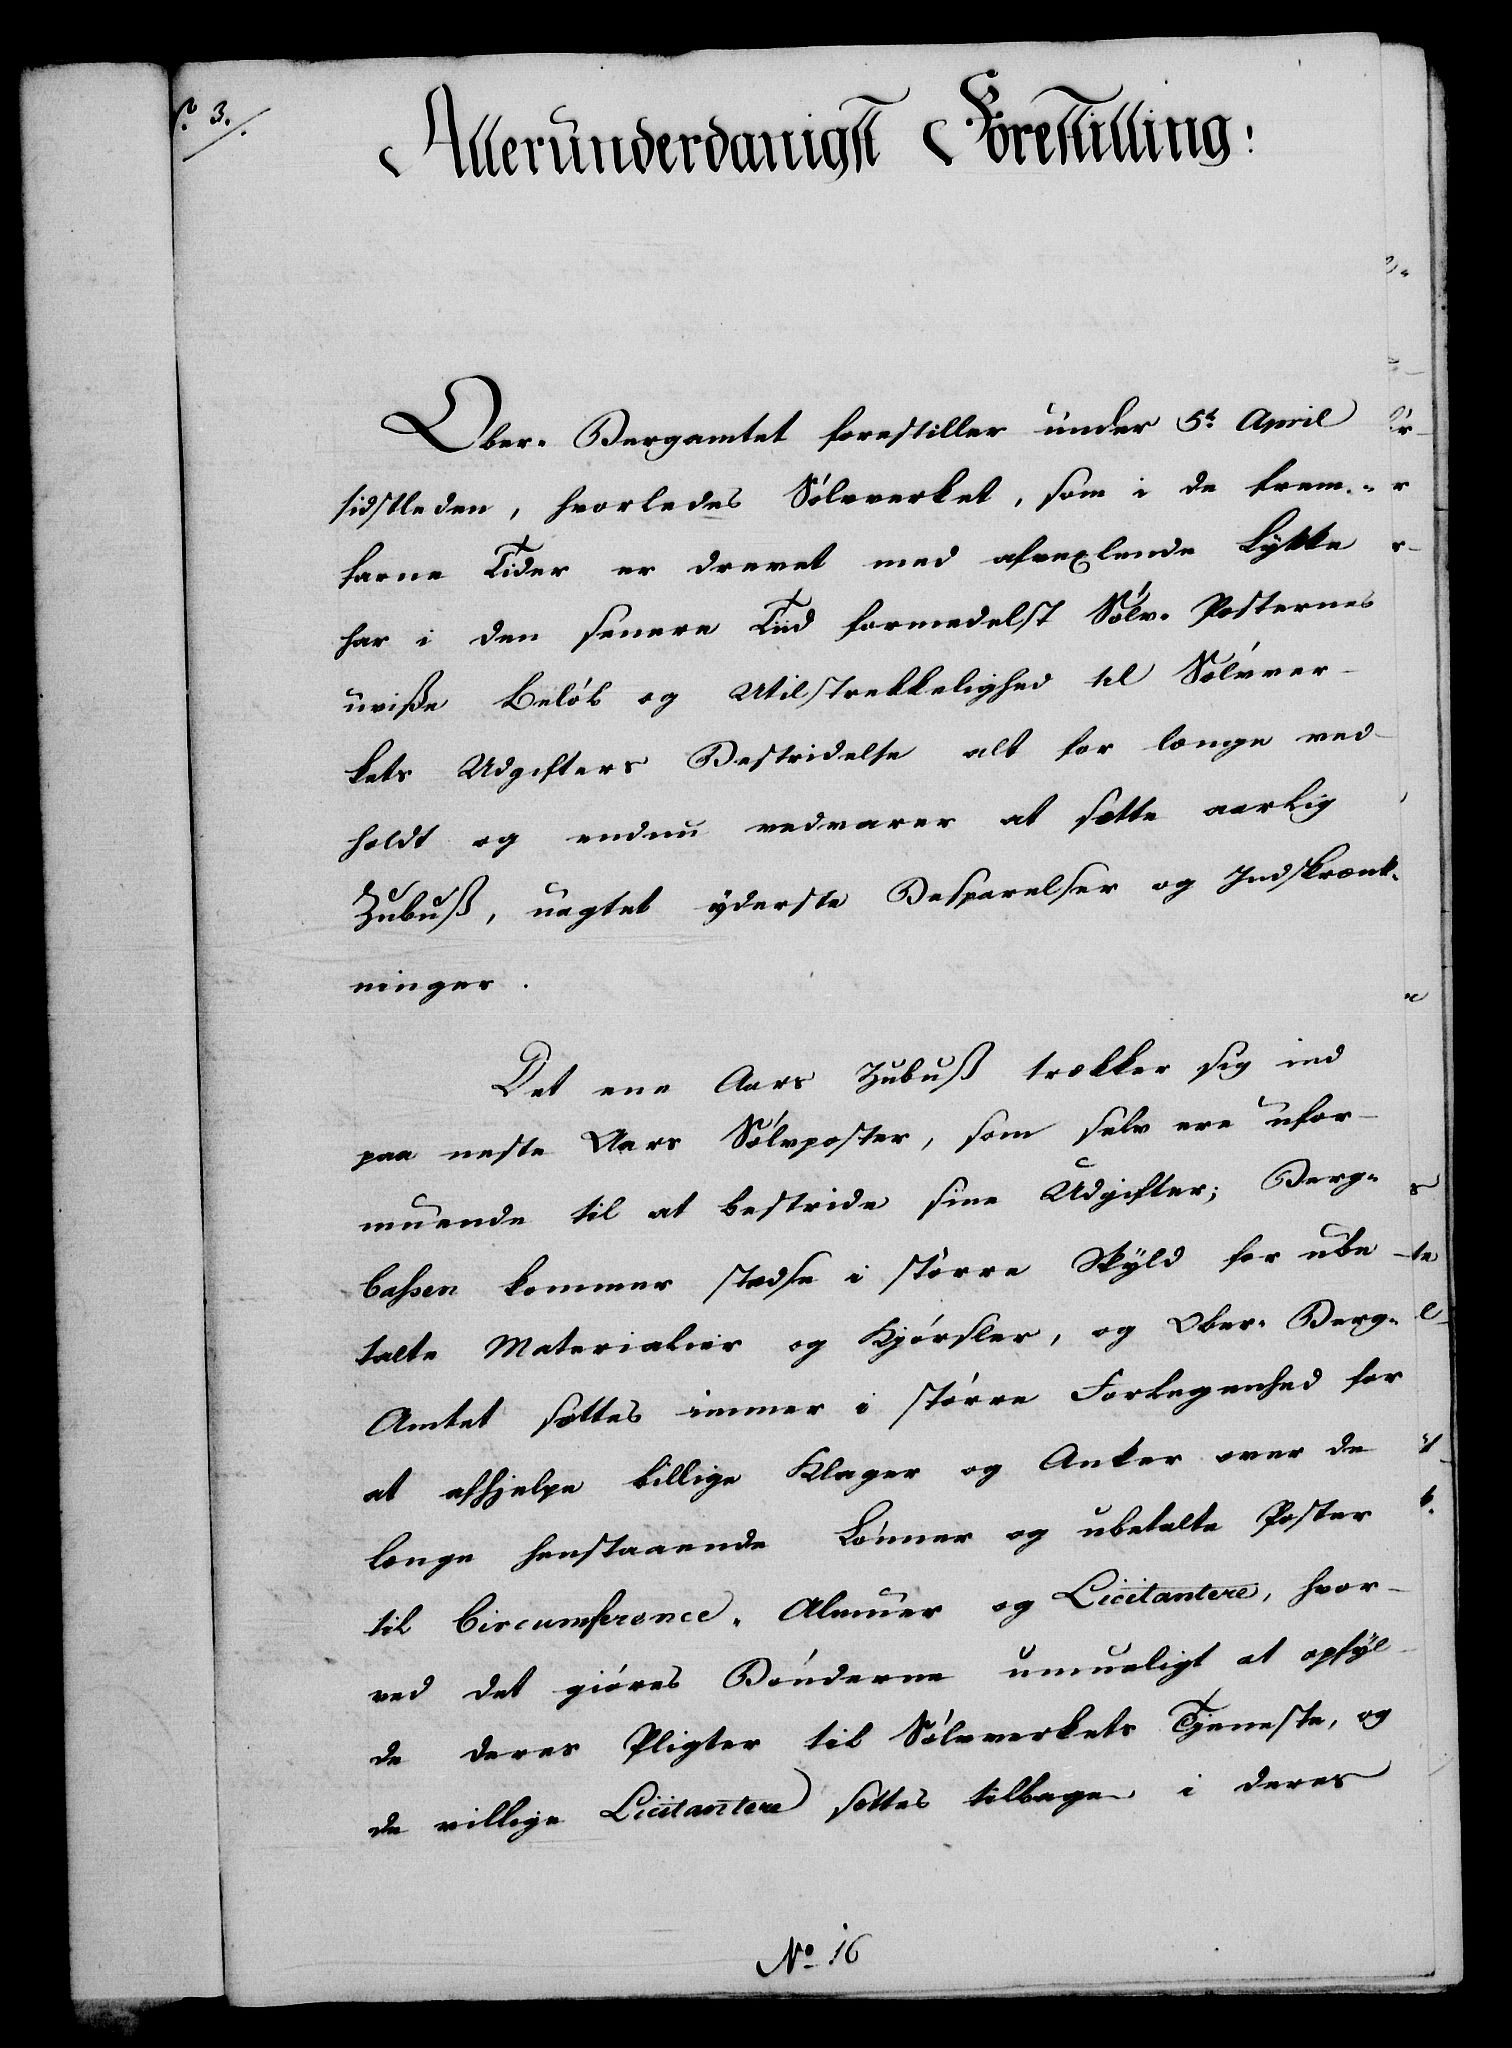 3./.
Allerunderdanigst Forestilling:
Ober-Bergamtet forestiller under 5t April
sidstleden, hvorledes Sølvverket, som i de frem-
farne Tider er drevet med afvexlende Lykke
har i den senere Tiid formedelst Sølv-Posternes
uviße Beløb og Utilstrekkelighed til Sølvver-
kets Udgifters Bestridelse alt for længe ved-
holdt og endnu vedvarer at sætte aarlig
Zubuß, uagtet yderste Besparelser og Indskrænk-
ninger.
Det ene Aars Zubuß trækker sig ind
paa neste Aars Sølvposter, som selv ere ufor-
muende til at bestride sine Udgifter; Berg-
Caßen kommer stedse i større Skyld for ube-
talte Materialier og Kjørsler, og Ober-Berg-
Amtet sættes immer i større Forlegenhed for
at afhjelpe billige Klager og Anker over de
længe henstaaende Lønner og ubetalte Poster
til Circumference-Almuer og Licitantere, hvor-
ved det giøres Bønderne umueligt at opfyl-
de deres Pligter til Sølvverkets Tjeneste, og
de villige Licitantere settes tilbage i deres
No 16